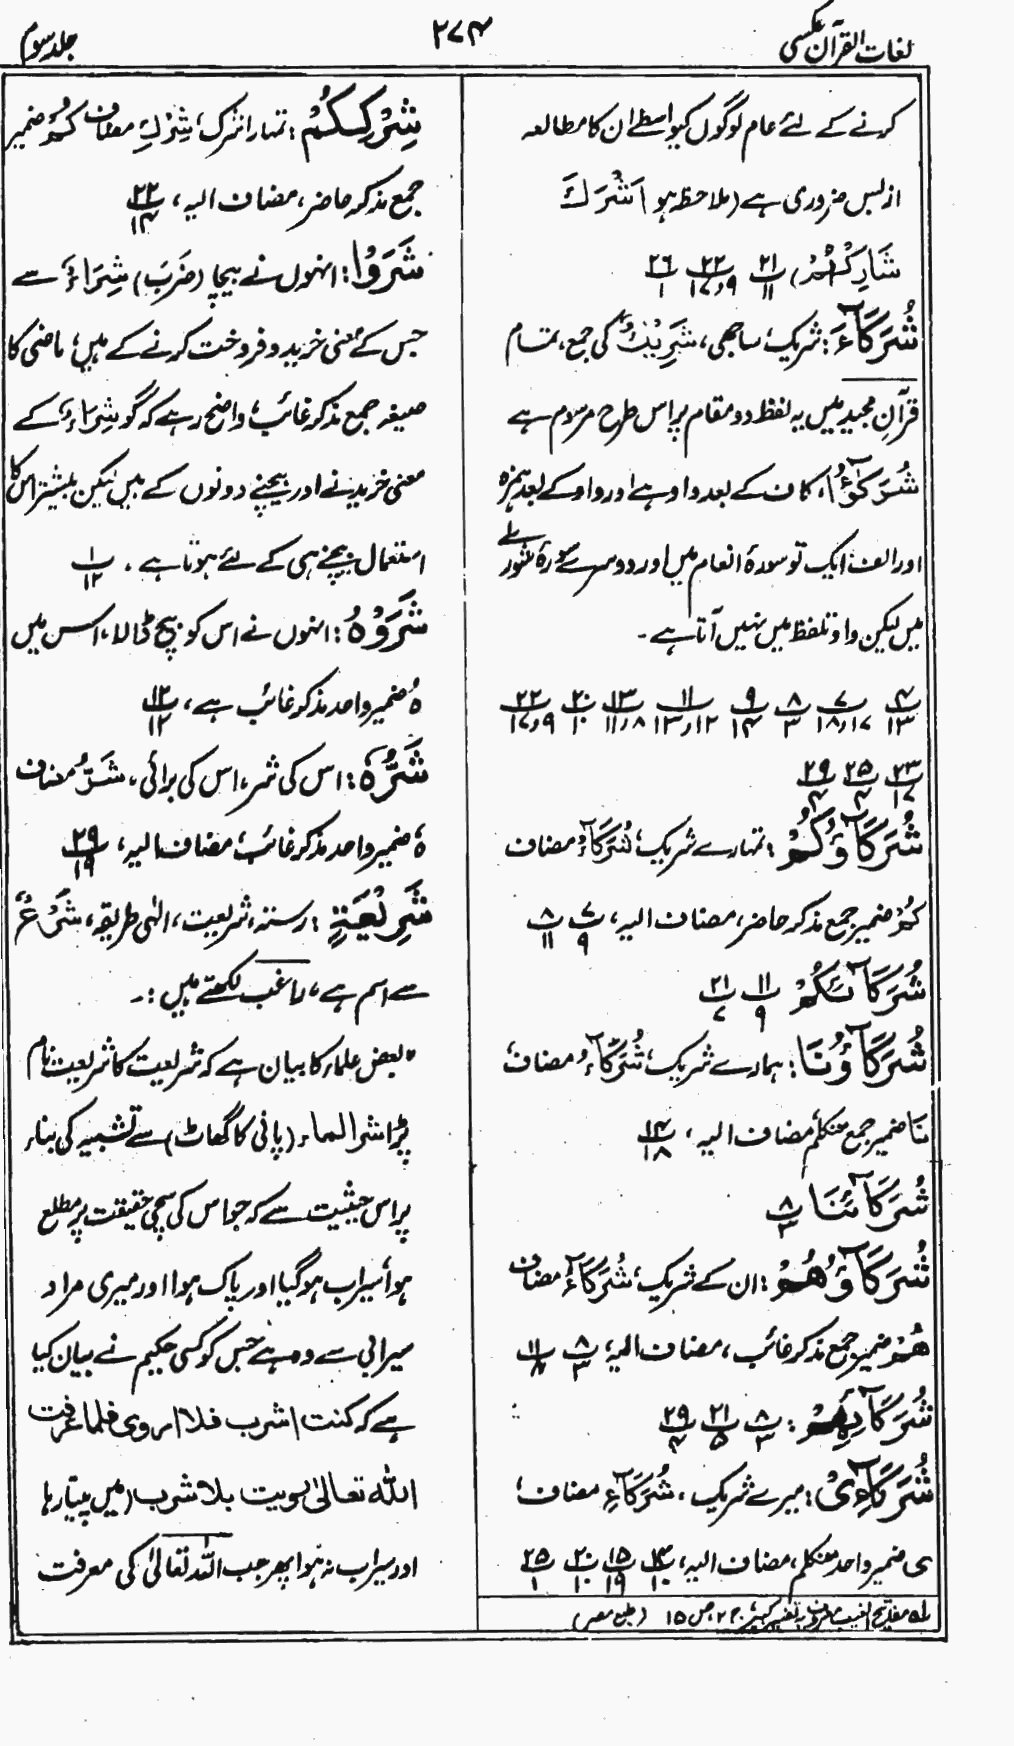 لغات القرآن عکسی
۲۷۴
جلد سوم
کرنے کے لئے عام لوگوں کیواسطے ان کا مطالعہ
ازبس ضروری ہے (ملاحظہ ہو اَشْرَكَ
شَارِكْهُمْ) ۲۱/۱۱ ۲۲/۹و۱۷ ۲۶/۱
شُرَكَآءَ: شریک، ساجھی، شَرِيْكٌ کی جمع، تمام
قرآنِ مجید میں یہ لفظ دو مقام پر اس طرح مرسوم ہے
شُرَكٰٓؤُا، کاف کے بعد واو ہے اور واو کے بعد ہمزہ
اور الف ایک تو سورۂ انعام میں اور دوسرے سورۂ شوریٰ
میں لیکن واو تلفظ میں نہیں آتا ہے۔
۴/۱۳ ۷/۱۷و۱۸ ۸/۳ ۹/۱۴ ۱۱/۱۲و۱۳ ۱۳/۸و۱۱ ۲۰/۱۰ ۲۲/۹و۱۷
۲۳/۱۷ ۲۵/۴ ۲۹/۴
شُرَكَآؤُكُمْ: تمہارے شریک، شُرَكَآءُ مضاف
كُمْ ضمیر جمع مذکر حاضر، مضاف الیہ، ۷/۹ ۸/۱۱
شُرَكَآئِكُمْ ۱۱/۹ ۲۱/۷
شُرَكَآؤُنَا: ہمارے شریک، شُرَكَآءُ مضاف،
نَا ضمیر جمع متکلم مضاف الیہ، ۱۴/۱۸
شُرَكَآئِنَا ۸/۳
شُرَكَآؤُهُمْ: ان کے شریک، شُرَكَآءُ مضاف
هُمْ ضمیر جمع مذکر غائب، مضاف الیہ، ۸/۳ ۱۱/۸
شُرَكَآئِهِمْ: ۸/۳ ۲۱/۵ ۲۹/۴
شُرَكَآءِیْ: میرے شریک، شُرَكَآءِ مضاف،
ی ضمیر واحد متکلم، مضاف الیہ، ۱۴/۱۰ ۱۵/۱۹ ۲۰/۱۰ ۲۵/۱
لہ مفاتیح الغیب معروف بہ تفسیر کبیر، ج ۲، ص ۱۵ (طبع مصر)
شِرْكِكُمْ: تمہارا شرک، شِرْكِ مضاف كُمْ ضمیر
جمع مذکر حاضر، مضاف الیہ، ۲۲/۱۴
شَرَوْا: انہوں نے بیچا (ضَرَبَ) شِرَاءٌ سے
جس کے معنی خرید و فروخت کرنے کے ہیں، ماضی کا
صیغہ جمع مذکر غائب، واضح رہے کہ گو شِرَاءٌ کے
معنی خریدنے اور بیچنے دونوں کے ہیں لیکن بیشتر اس کا
استعمال بیچنے ہی کے لئے ہوتا ہے۔ ۱/۱۲
شَرَوْهُ: انہوں نے اس کو بیچ ڈالا، اس میں
هُ ضمیر واحد مذکر غائب ہے، ۱۲/۱۲
شَرُّهٗ: اس کی شر، اس کی برائی، شَرُّ مضاف
هٗ ضمیر واحد مذکر غائب، مضاف الیہ، ۲۹/۱۹
شَرِيْعَةٍ: رستہ، شریعت، الٰہی طریقہ، شَرْعٌ
سے اسم ہے، راغب لکھتے ہیں:۔
"بعض علماء کا بیان ہے کہ شریعت کا شریعت نام
پڑا شرالماء (پانی کا گھاٹ) سے تشبیہ کی بناء
پر اس حیثیت سے کہ جو اس کی سچی حقیقت پر مطلع
ہوا سیراب ہوگیا اور پاک ہوا اور میری مراد
سیرابی سے وہ ہے جس کو کسی حکیم نے بیان کیا
ہے کہ کنت اشرب فلا اروی فلما عرفت
اللّٰه تعالیٰ رویت بلا شرب (میں پیتا رہا
اور سیراب نہ ہوا پھر جب اللّٰہ تعالیٰ کی معرفت